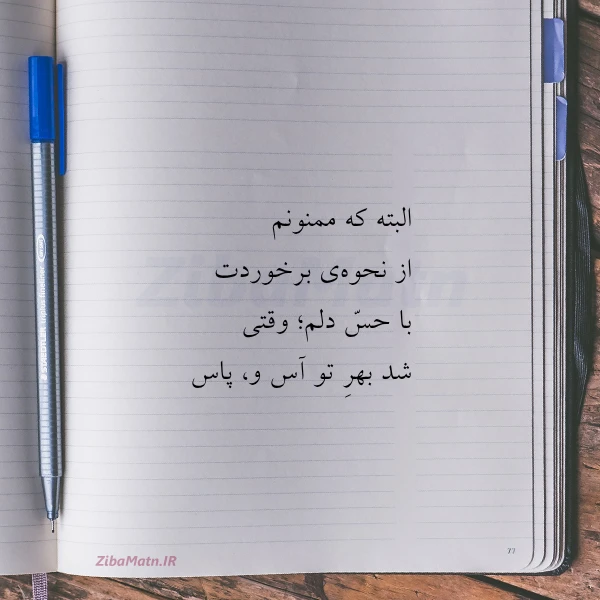 البته که ممنونم
از نحوه‌ی برخوردت
با حسّ دلم؛ وقتی
شد بهرِ تو آس و، پاس
ZibaMatn
ZibaMatn.IR